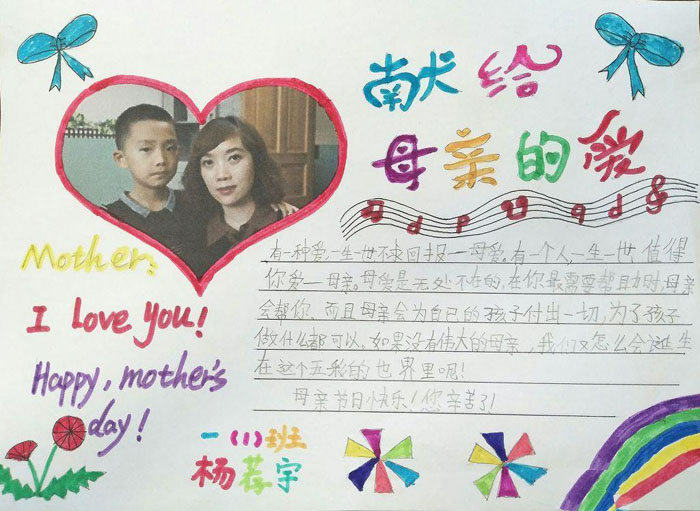 献给
母亲的爱
Mother:
I love you!
Happy, mother's
day!
有一种爱一生一世不求回报——母爱。有一个人一生一世值得
你爱——母亲。母爱是无处不在的,在你最需要帮助时,母亲
会帮你。而且母亲会为自己的孩子付出一切,为了孩子
做什么都可以。如果没有伟大的母亲,我们又怎么会诞生
在这个五彩的世界里呢!
母亲节日快乐!您辛苦了!
一(1)班
杨荐宇